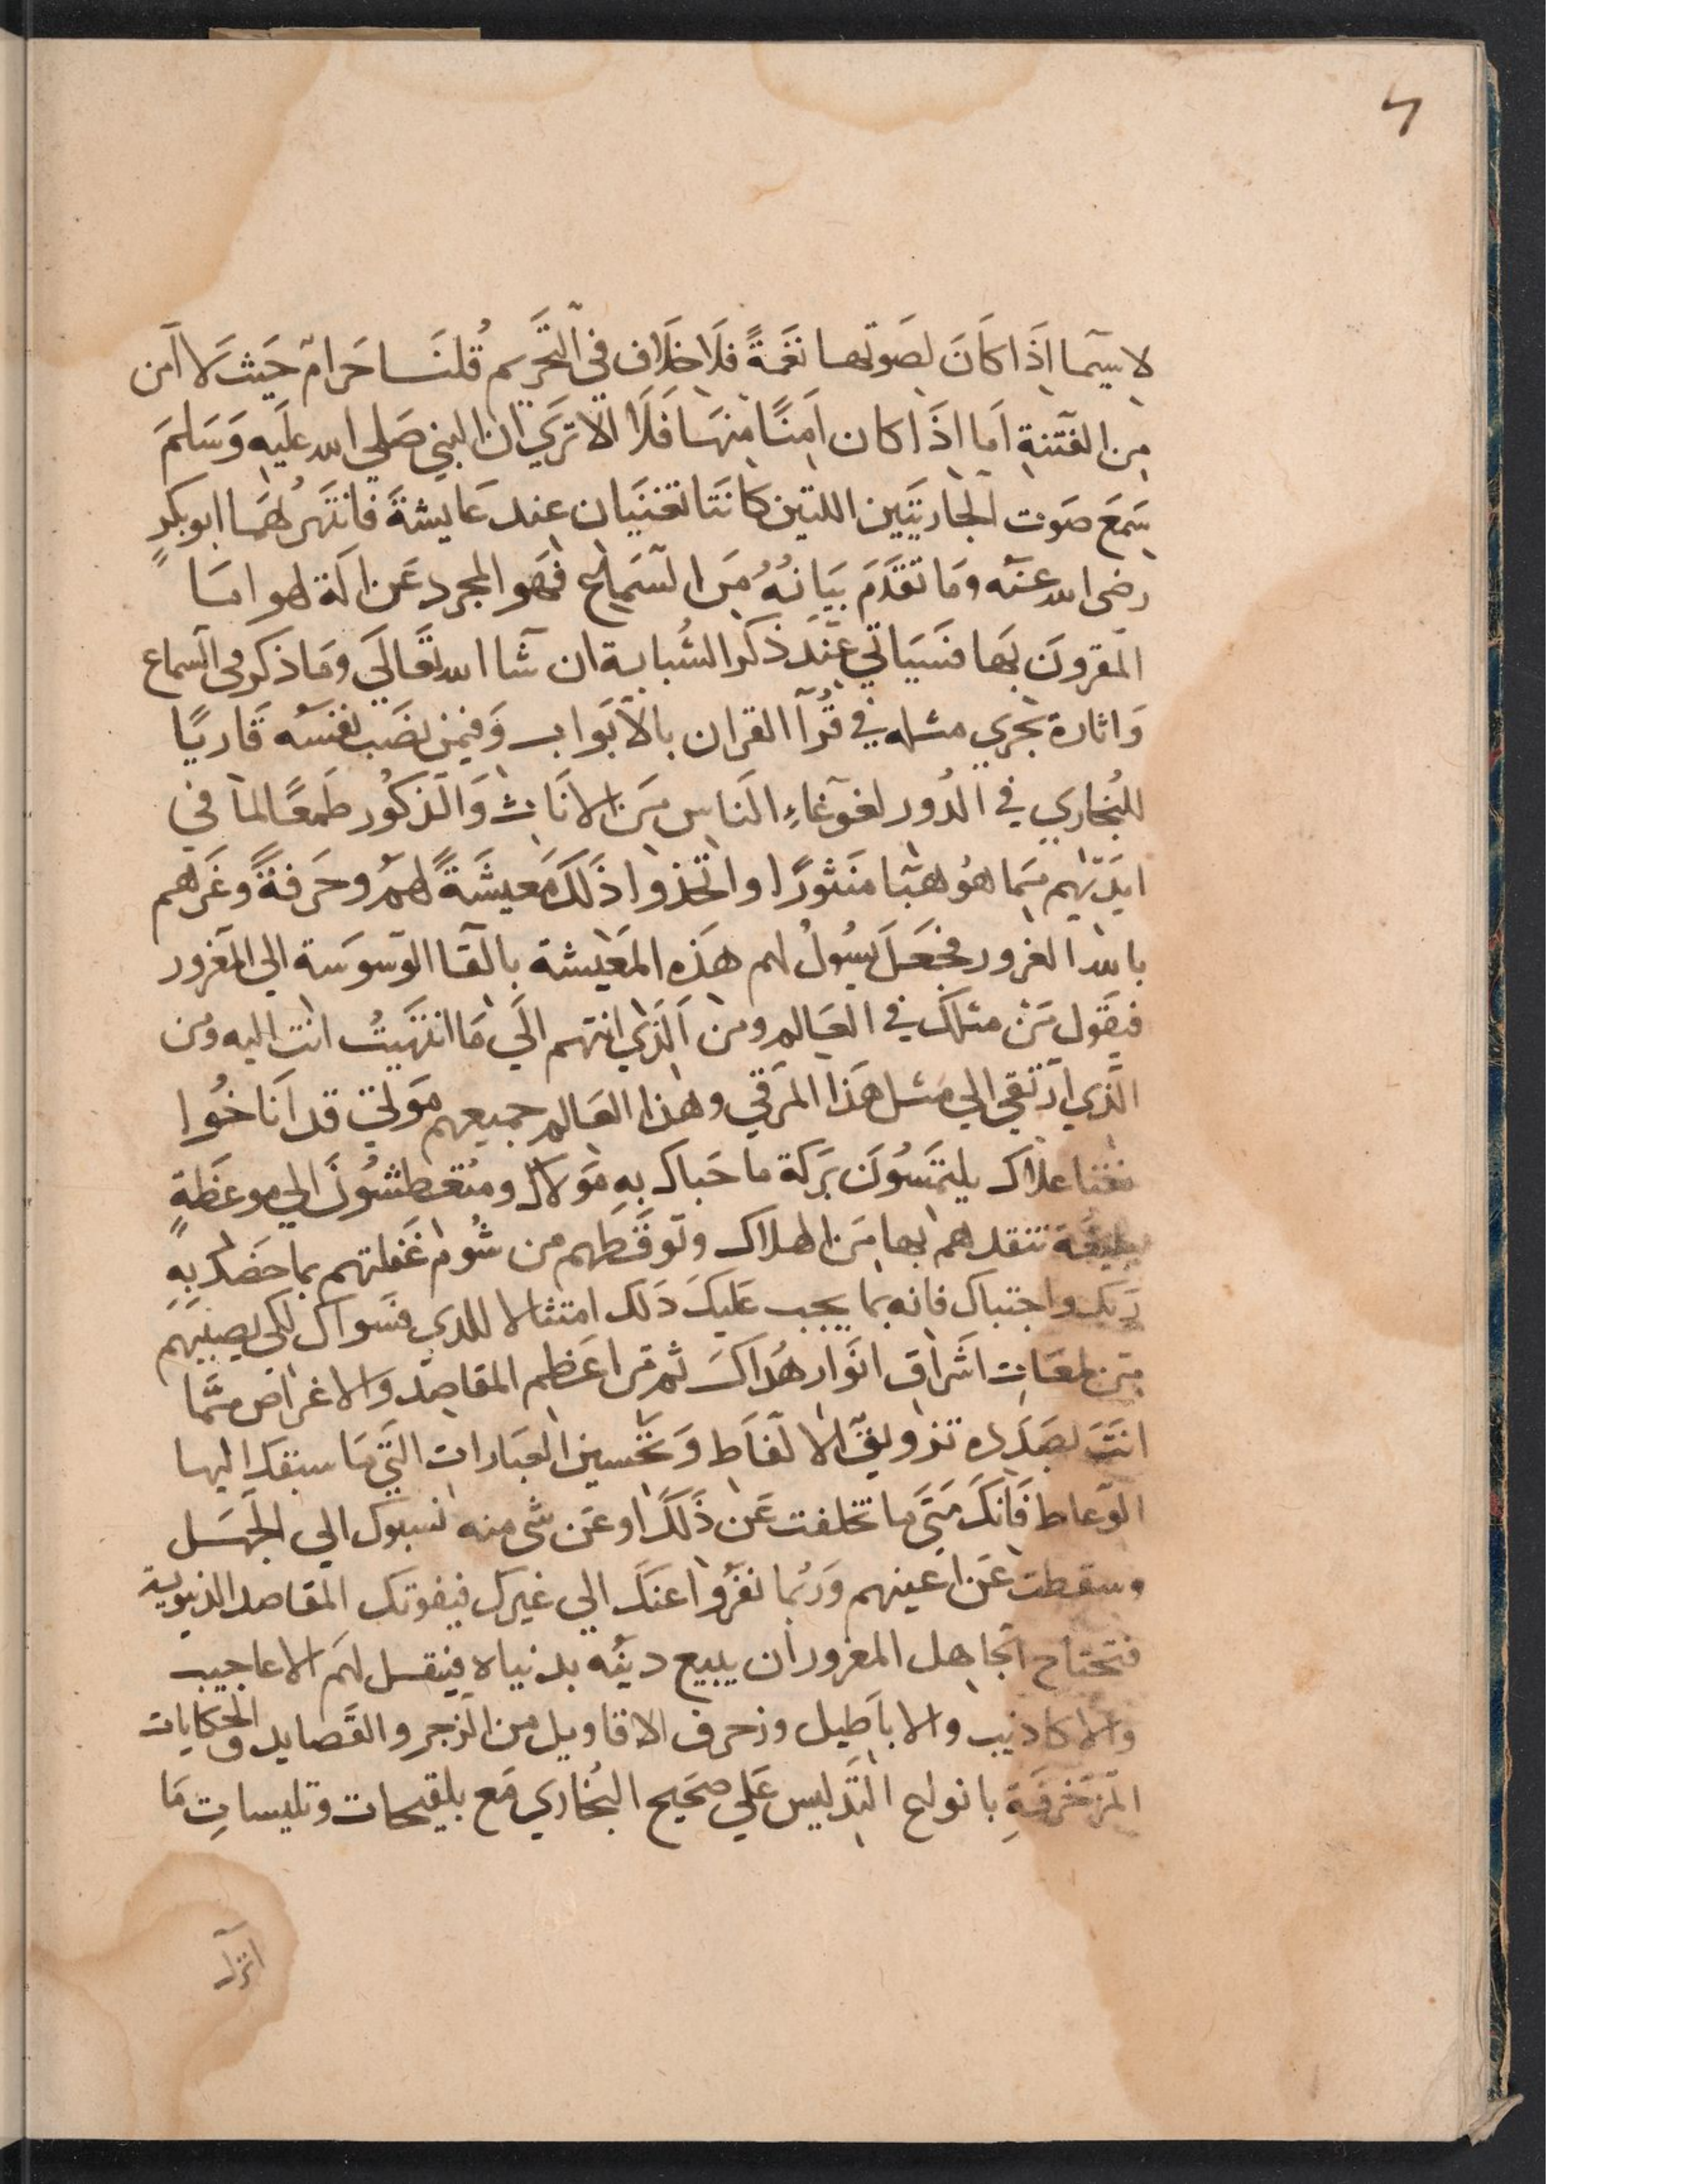 ٤
لا سيّما اذَا كَانَ لصَوتها نَغمَةً فلَا خلَاف في التّحَريم قُلنَا حَرامٌ حَيث لَا آمن
من الفتنة امَا اذَا كان اَمِنًا مِنهَا فَلَا الا تري ان النبي صَلي الله عليَه وَسَلمَ
سَمعَ صَوت الجاريتَين اللتين كانتَا تغنيَان عند عَايشةَ فانتَهرهُمَا ابو بكرٍ
رضي الله عنه ومَا تقدَّمَ بيَانهُ مِنَ السّمَاع فهَو المجرد عَن الَة لهو امَا
المقرونَ بهَا فسَيَاتي عنِدَ ذكر الشُبابة ان شا الله تعَالَي ومَا ذكر في السماع
وَاثارة يجري مثله في قُرآ القران بالاَبوَاب وَفيمَن نصَب نفسَه قَاريًا
للبُخاري في الدُور لغوغَاءِ النَاس مِنَ الانَاث وَالذكوُر طَمعًا لما في
ايديَهم مِمَا هُو هبَا منَثورًا واتخذوا ذَلكَ مَعيشَةً لهمُ وحَرفَةً وَغَرهم
بالله الغرور فجعَلَ يسُولُ لهم هَذه المعَيشة بالقَا الوَسوَسَة الي المَغرور
فيَقَول مَن مثلكَ في العَالم ومن الَذي انتهم الَي مَا انتهَيتُ انت اليه ومن
الَّذي ارتقي الي مَثل هَذا المرَقي وهذا العَالم جميعهم مَولتي قد اَنَاخُوا
يلتمَسُونَ بَركة ما حَباك بهِ مَولاك ومتُعَطشُونَ الي موعَظةٍ
تنقدهم بها مَن الهلاك وتوَقَظهم من شُوم غَفلتهم بما خَصَك بهِ
رَبك واجتباك فانه بما يجب عَليكَ ذَلك امتثالا للذي فسَواك لكي يصيبَهَم
مِن لمعَات اشَراق انوَار هُداكَ ثم مَن اعَظم المقاصِد والاغراض مِمَّا
انتَ بصَدَده تزويقَ الالفَاظ وَتحَسين العبَارات التَّي مَا سبقك اليها
الوَعاظ فَانكَ مَتَي ما تخلفت عَن ذَلَكَ او عَن شي منه نسبوك الي الجَهَل
وسقطت عَن اعَينهم وَربُما نفَرُوا عنَك الي غيرك فيفوتك المقاصد الدنيوية
فتحتاح الجاهل المغرور ان يبيع دينُه بدنياه فينقل لهَم الاعاجيب
والاكاذيب والابَاطيل وزخرف الاقاويل من الزجر والقَصايد والحكايات
المزَخرفَةِ بانواع التَدليس عَلي صحَيح البُخاري مَع بلقيحات وتلبيساتِ مَا